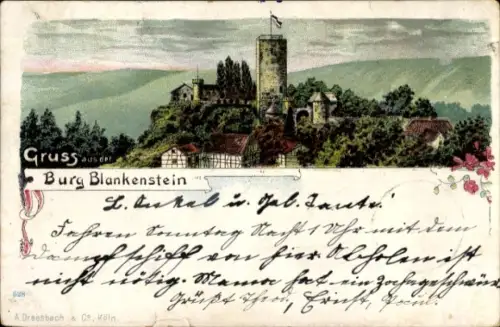 Gruss aus der
Burg Blankenstein
L. Onkel u. Tante!
Fahren Sonntag Nacht 1 Uhr mit dem
Dampfschiff von hier. Abholen ist
nicht nötig. Mama hat ein Zahngeschwür
Grüßt Ernst,
A. Dressbach & Co. Köln.